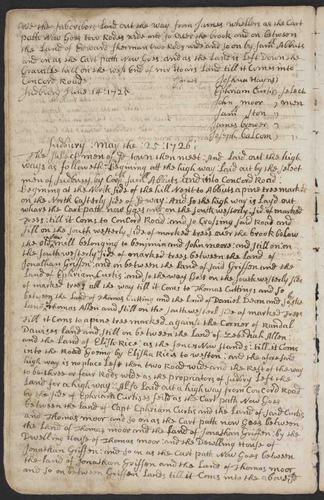 We the subscribers Laid out the way from James whellers as the Cart
path Now Goes two Rodes wide and so over the brook and on between
the Land of Edward sherman two Rods wide and so on by Samll Abbuts
and on as the Cart path Now Goes and as the Land is Left Down the
Gravilly hill on the west End of mr Hoars Land till it Comes into
Concord Road: Joshua Haynes
Sudbury June 14 1725 Ephriam Curtis select
John moor men
Samll ston
James brower
Joseph balcom
Sudbury: may the 25: 1726
The select men of sd town then meet: and Laid out the high
ways as followeth: Begining att the high way Laid out by the select
men of Sudbury by Capt Samll Abbuts Land into Concord Road:
Begining at the North side of the hill Next to Abbuts a pine tree markt
on the North Easterly side of sd way: And so the high way is Layd out
whare the Cart path Now Goes and on the southwesterly side of marked
trees: till it Coms to Concord Road: and so Crossing said Road and
still on the southwesterly side of marked trees over the brook below
the old mill belonging to benjamin and John moors: and still on: on
the southwesterly side of marked trees between the Land of
Jonathan Griffen: and on between the Land of said Griffen and the
Land of Ephriam Curtis: and so the way Goes on the southwesterly side
of marked trees all the way till it Coms to Thomas Cuttings and so
between the Land of Thomas Cutting and the Land of Daniel and so the
Land Thomas Allen and still on the southwesterly side of marked trees
till it Coms to a pine tree marked against the Corner of Randal
Davises land and still on between the Land of Zebediah Allen
and the Land of Elisha Rice as the fence Now stands: till it Coms
into the Road Going by Elisha Rices to weston: and the aforesaid
high way is no place Left then two Rods wide and the Rest of the way
to be three or four Rods wide as the propriators of Sudbury Left the
Land for a high way: Also Laid out a high way from Concord Road
by the side of Ephriam Curtises field as the Cart path Now Goes
between the land of Capt Ephriam Curtis and the Land of said Curtis
and Thomas moor and so on as the Cart path now Goes between
the Land of Thomas moor and the Land of Jonathan Griffen: by the
Dwelling House of Thomas moor and the Dwelling House of
Jonathan Griffen: and so on as the Cart path Now Goes between
the Land of Jonathan Griffen and the Land of Thomas moor
and so on between Griffens Land till it Coms into the aforesd